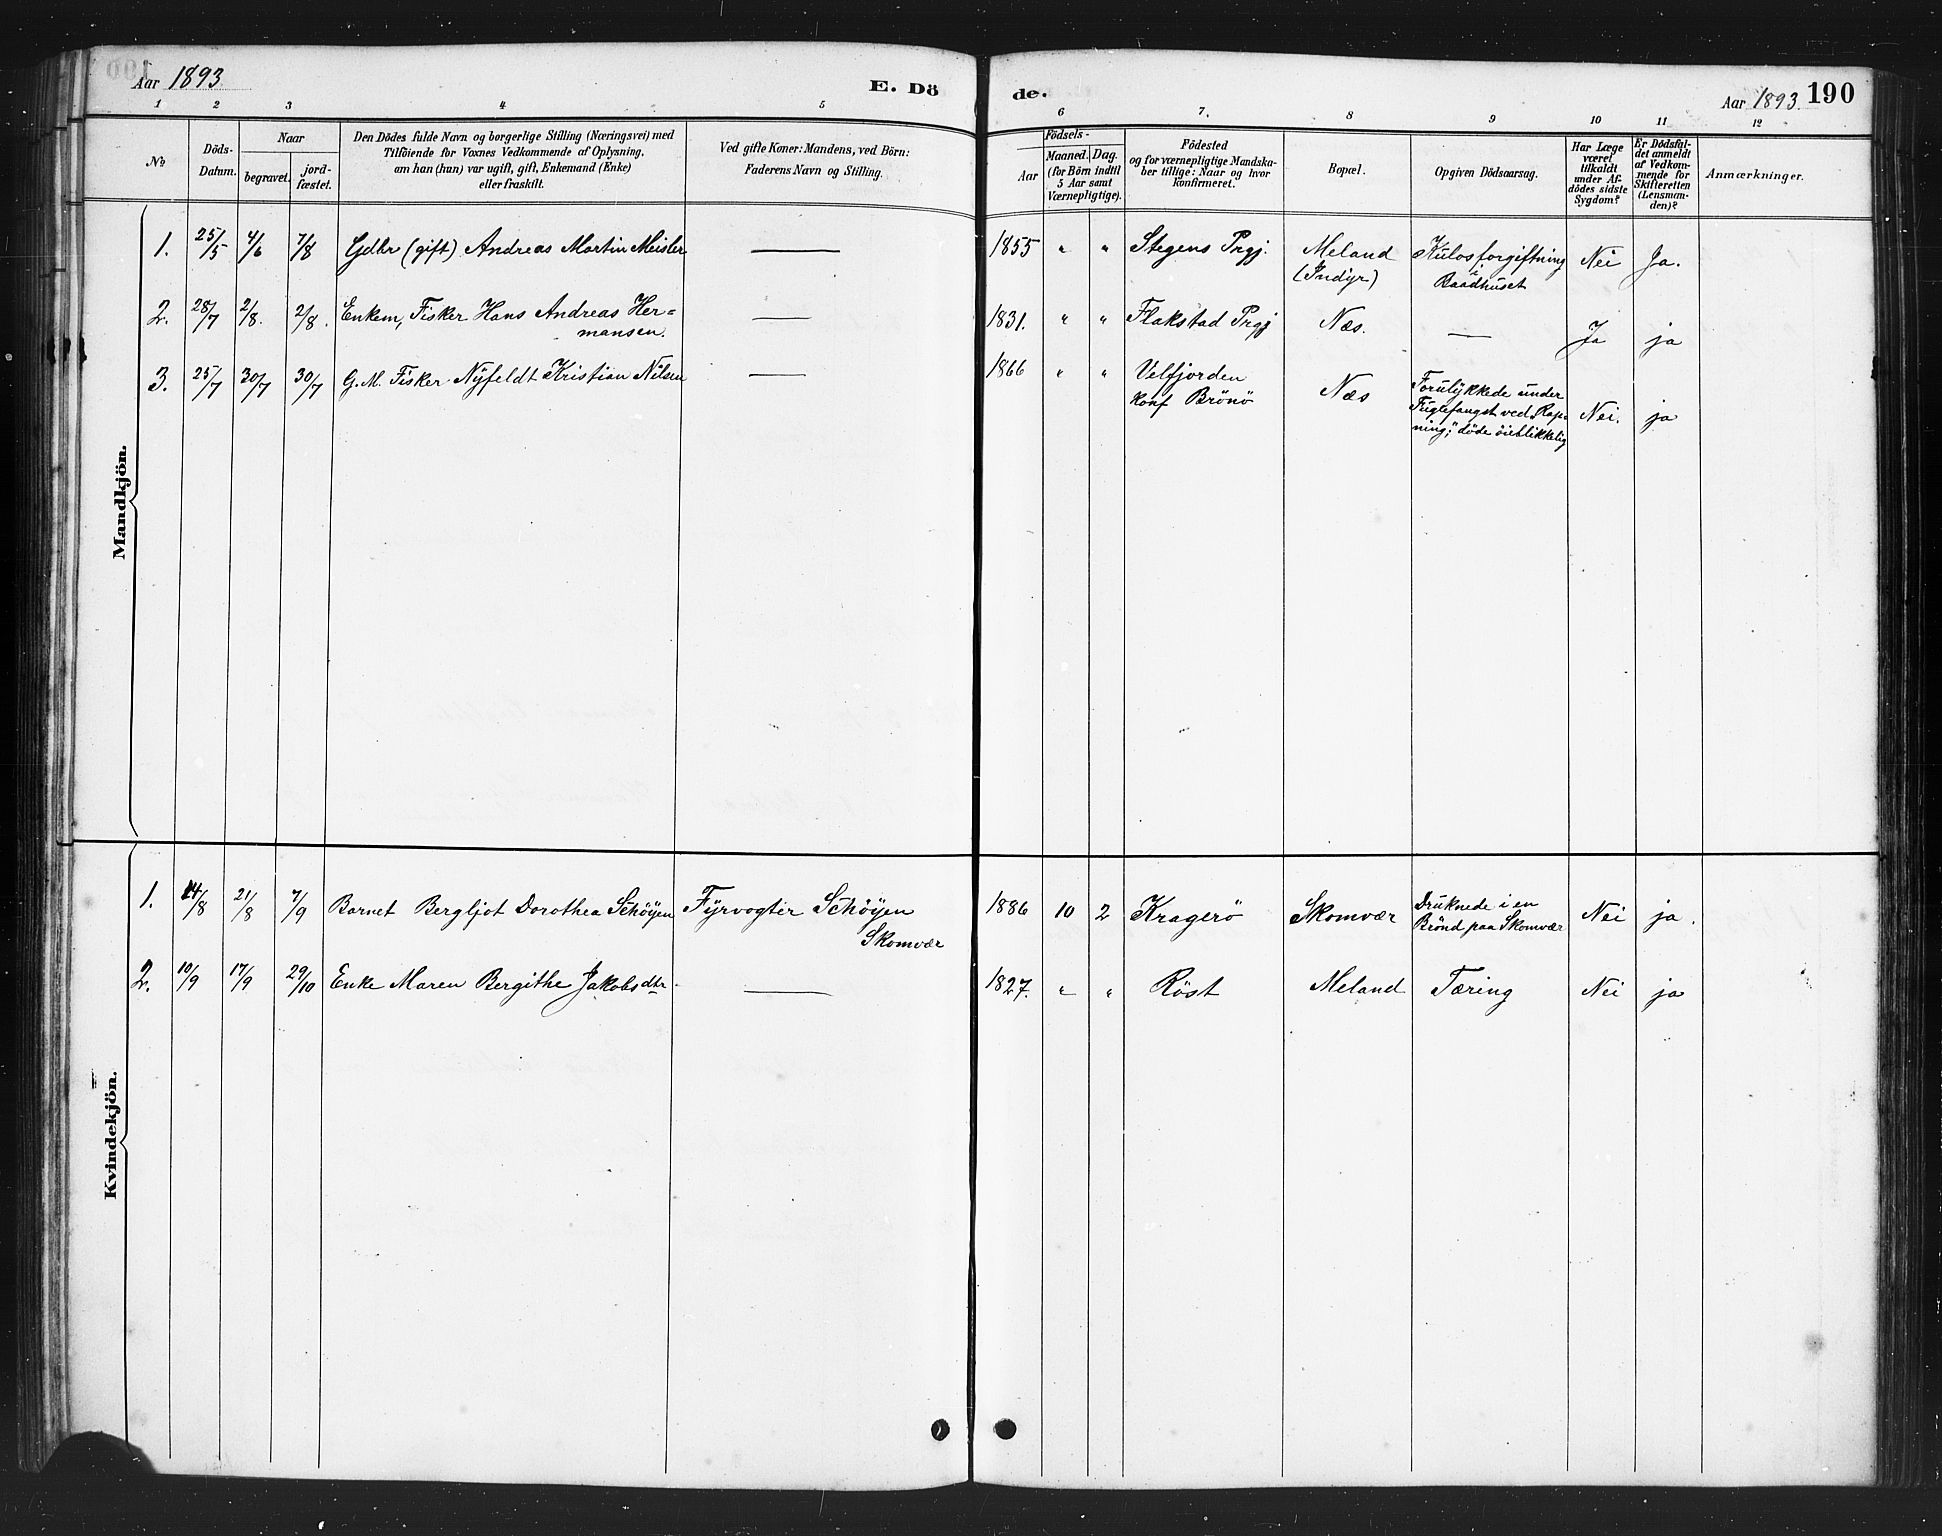 Aar 1893
E. Dö
de.
Aar 1893. 190
1 2 3 4 5 6 7. 8 9 10 11 12
No
Döds-
Datum.
Naar
begravet.
jord-
fæstet.
Den Dödes fulde Navn og borgerlige Stilling (Næringsvei) med
Tilföiende for Voxnes Vedkommende af Oplysning,
om han (hun) var ugift, gift, Enkemand (Enke)
eller fraskilt.
Ved gifte Koner: Mandens, ved Börn:
Faderens Navn og Stilling.
Födsels-
Aar
Maaned. Dag.
(for Börn indtil
5 Aar samt
Værnepligtige).
Födested
og for værnepligtige Mandska-
ber tillige: Naar og hvor
konfirmeret.
Bopæl.
Opgiven Dödsaarsag.
Har Læge
været
tilkaldt
under Af-
dödes sidste
Sygdom?
Er Dödsfal-
det anmeldt
af Vedkom-
mende for
Skifteretten
(Lensman-
den)?
Anmærkninger.
Mandkjön.
1. 25/5 4/6 7/8 Gdbr (gift) Andreas Martin Meisler — 1855 " " Stegens Prgj. Meland Kulosforgiftning Nei Ja.
(Indyr) i
Baadhuset
2. 28/7 2/8. 2/8. Enkem, Fisker Hans Andreas Her= — 1831. " " Flakstad Prgj Næs. — Ja ja
mansen.
3. 25/7 30/7 30/7 G. M. Fisker Nyfeldt Kristian Nilsen — 1866 " " Velfjorden Næs Forulykkede under Nei. ja
konf Brönö Fuglefangst ved "Rap-
ning;" døde öieblikkelig
Kvindekjön.
1. 14/8 21/8 7/9 Barnet Bergljot Dorothea Schöyen Fyrvogter Schöyen 1886 10 2 Kragerö Skomvær Druknede i en Nei ja.
Skomvær Brönd paa Skomvær
2. 10/9 17/9 29/10 Enke Maren Bergithe Jakobsdtr. — 1827. " " Röst Meland Tæring Nei ja